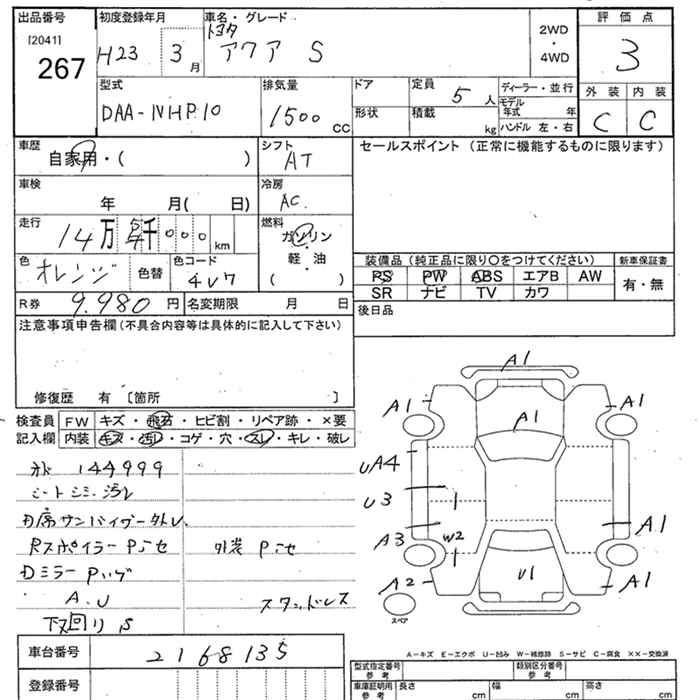 出品番号
[2041]
267
初度登録年月
H23 3月
車名・グレード
トヨタ
アクア S
2WD
・
4WD
評価点
3
外装 内装
C C
型式
DAA-NHP10
排気量
1500 CC
ドア
形状
定員
5人
積載
kg
ディーラー・並行
モデル年式 年
ハンドル 左・右
車歴
自家用・( )
シフト
AT
車検
年 月( 日)
冷房
AC
走行
14万 5千 000 km
燃料
ガソリン
軽・油
( )
色
オレンジ
色替
色コード
4V7
R券
9,980円
名変期限 月 日
セールスポイント(正常に機能するものに限ります)
装備品(純正品に限り○をつけてください)
PS PW ABS エアB AW
SR ナビ TV カワ
新車保証書
有・無
後日品
注意事項申告欄(不具合内容等は具体的に記入して下さい)
修復歴 有 〔箇所 〕
検査員
記入欄
FW キズ・飛石・ヒビ割・リペア跡・×要
内装 キズ・汚レ・コゲ・穴・スレ・キレ・破レ
144999
シートシミ汚レ
D席サンバイザー外レ
Rスポイラー Pシセ
外装 Pシセ
Dミラー Pハゲ
A.U
スタッドレス
下回りS
A1
A1
A1
A1
UA4
U3
A3
W2
A2
U1
A1
A1
スペア
A-キズ E-エクボ U-凹み W-補修跡 S-サビ C-腐食 ××-交換済
車台番号
2168135
登録番号
型式指定番号
参考
類別区分番号
参考
車庫証明用
参考
長さ cm
幅 cm
高さ cm